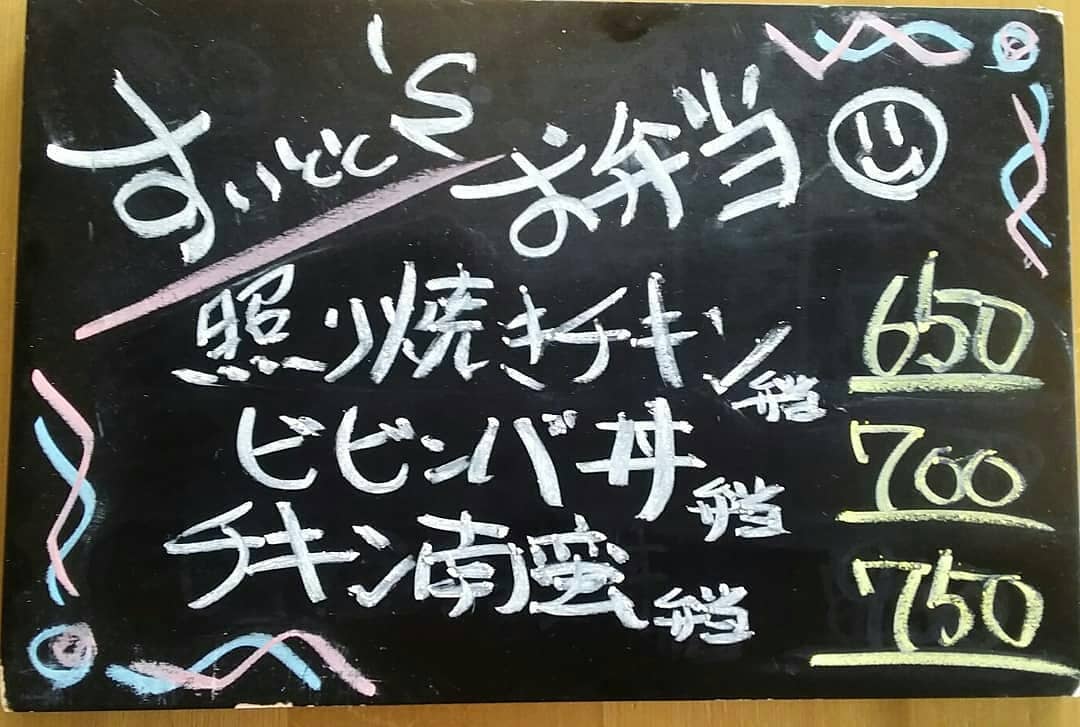 すいとく'S お弁当
照り焼きチキン弁当 650
ビビンバ丼弁当 700
チキン南蛮弁当 750